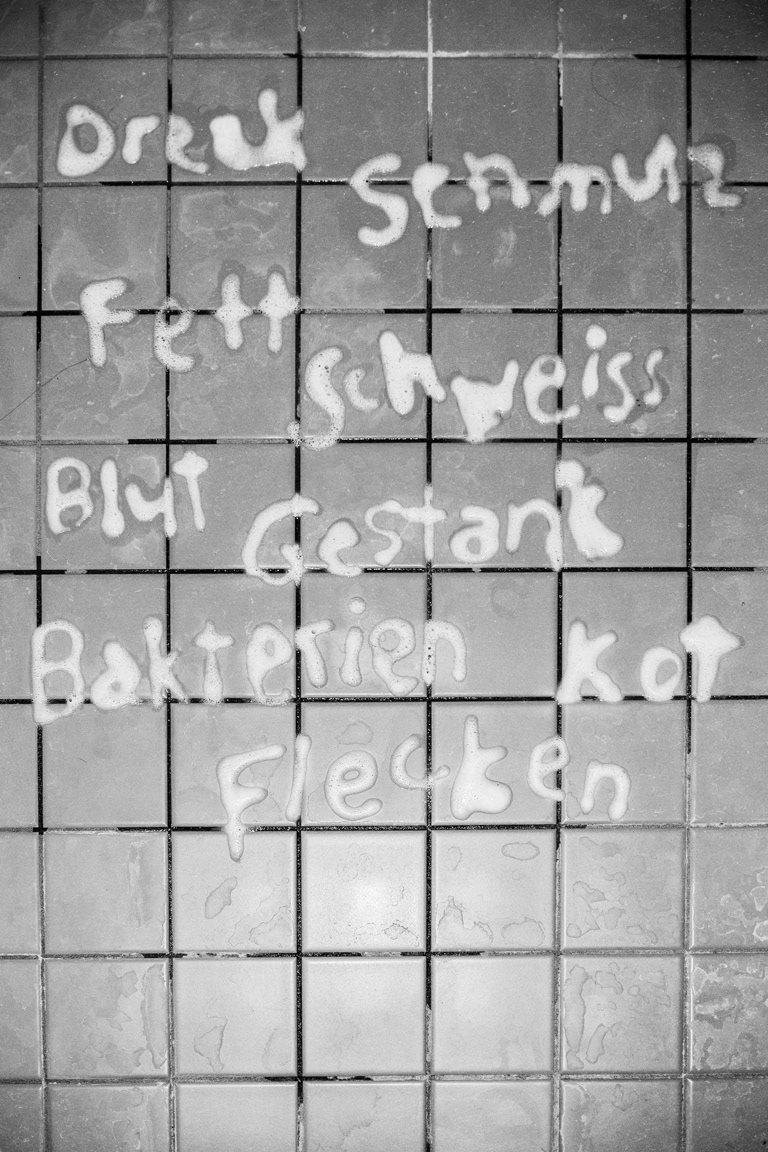 Dreck
Schmutz
Fett
Schweiss
Blut
Gestank
Bakterien Kot
Flecken